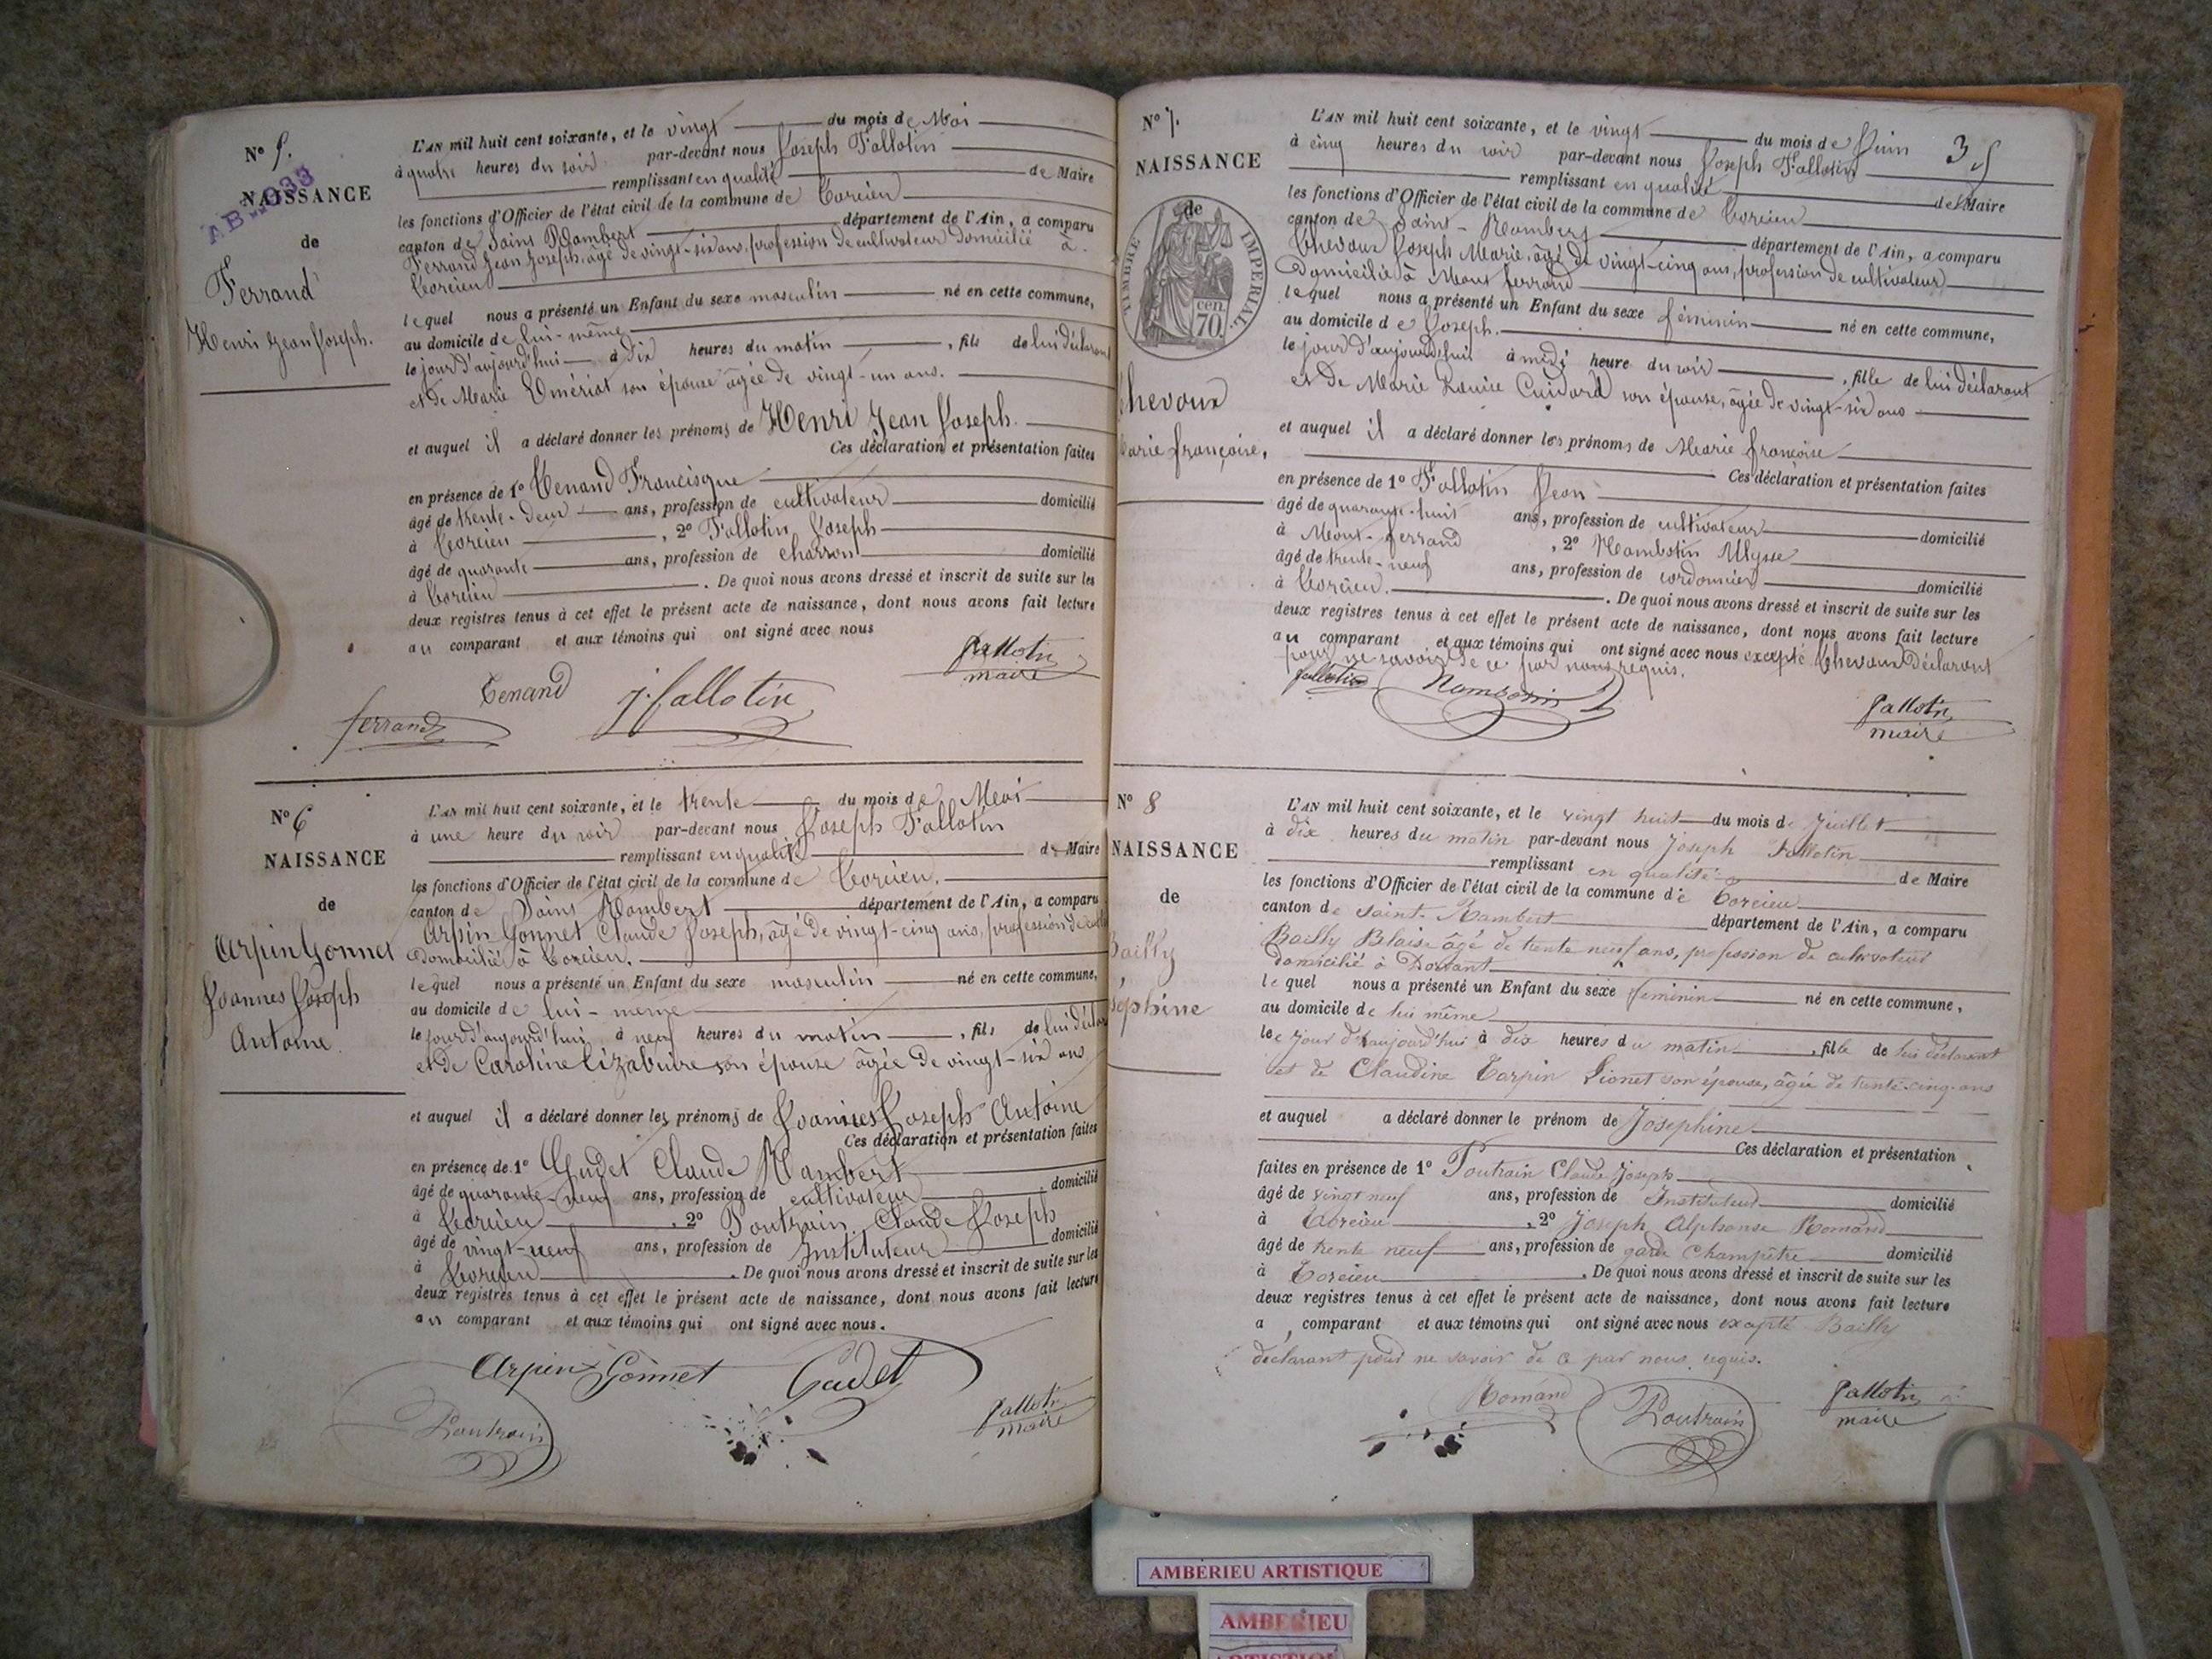 Nº 5.
NAISSANCE
AB..033
de
Ferrand
Henri Jean Joseph.
L'AN mil huit cent soixante, et le vingt du mois de Mai
à quatre heures du soir par-devant nous Joseph Fallotin
remplissant en qualité de Maire
les fonctions d'Officier de l'état civil de la commune de Torcieu
canton de Saint Rambert département de l'Ain, a comparu
Ferrand Jean Joseph, âgé de vingt-six ans, profession de cultivateur domicilié à
Torcieu
lequel nous a présenté un Enfant du sexe masculin né en cette commune,
au domicile de lui-même
le jour d'aujourd'hui à dix heures du matin, fils de lui déclarant
et de Marie Emériat son épouse âgée de vingt-un ans.
et auquel il a déclaré donner les prénoms de Henri Jean Joseph.
Ces déclaration et présentation faites
en présence de 1º Tenand Francisque
âgé de trente-deux ans, profession de cultivateur domicilié
à Torcieu, 2º Fallotin Joseph
âgé de quarante ans, profession de charron domicilié
à Torcieu. De quoi nous avons dressé et inscrit de suite sur les
deux registres tenus à cet effet le présent acte de naissance, dont nous avons fait lecture
au comparant et aux témoins qui ont signé avec nous
Tenand j. fallotin fallotin
maire
ferrand
Nº 6
NAISSANCE
de
Arpin Gonnet
Joannes Joseph
Antoine
L'AN mil huit cent soixante, et le trente du mois de Mai
à une heure du soir par-devant nous Joseph Fallotin
remplissant en qualité de Maire
les fonctions d'Officier de l'état civil de la commune de Torcieu.
canton de Saint Rambert département de l'Ain, a comparu
Arpin Gonnet Claude Joseph, âgé de vingt-cinq ans, profession de
domicilié à Torcieu.
lequel nous a présenté un Enfant du sexe masculin né en cette commune,
au domicile de lui-même
le jour d'aujourd'hui à neuf heures du matin, fils de lui
et de Caroline son épouse âgée de vingt-six ans
et auquel il a déclaré donner les prénoms de Joannes Joseph Antoine
Ces déclaration et présentation faites
en présence de 1º Gudet Claude Rambert
âgé de quarante-neuf ans, profession de cultivateur domicilié
à Torcieu, 2º Poutrain Claude Joseph
âgé de vingt-neuf ans, profession de Instituteur domicilié
à Torcieu. De quoi nous avons dressé et inscrit de suite sur les
deux registres tenus à cet effet le présent acte de naissance, dont nous avons fait lecture
au comparant et aux témoins qui ont signé avec nous.
Arpin Gonnet Gudet
Poutrain fallotin
maire
Nº 7.
NAISSANCE
de
TIMBRE IMPERIAL
70 cen
hevoux
arie françoise,
35
L'AN mil huit cent soixante, et le vingt du mois de Juin
à cinq heures du soir par-devant nous Joseph Fallotin
remplissant en qualité de Maire
les fonctions d'Officier de l'état civil de la commune de Torcieu
canton de Saint-Rambert département de l'Ain, a comparu
Chevoux Joseph Marie, âgé de vingt-cinq ans, profession de cultivateur
domicilié à Mont ferrand
lequel nous a présenté un Enfant du sexe féminin né en cette commune,
au domicile de Joseph.
le jour d'aujourd'hui à midi heure du soir, fille de lui déclarant
et de Marie Louise Cuidard son épouse, âgée de vingt-six ans
et auquel il a déclaré donner les prénoms de Marie françoise
Ces déclaration et présentation faites
en présence de 1º Fallotin Jean
âgé de quarante-huit ans, profession de cultivateur domicilié
à Mont-ferrand, 2º Nambotin Ulysse
âgé de trente-neuf ans, profession de cordonnier domicilié
à Torcieu. De quoi nous avons dressé et inscrit de suite sur les
deux registres tenus à cet effet le présent acte de naissance, dont nous avons fait lecture
au comparant et aux témoins qui ont signé avec nous excepté Chevoux déclarant
pour ne savoir de ce par nous requis.
fallotin Nambotin fallotin
maire
Nº 8
NAISSANCE
de
Bailly
séphine
L'AN mil huit cent soixante, et le vingt huit du mois de Juillet
à dix heures du matin par-devant nous Joseph Fallotin
remplissant en qualité de Maire
les fonctions d'Officier de l'état civil de la commune de Torcieu
canton de saint-Rambert département de l'Ain, a comparu
Bailly Blaise âgé de trente neuf ans, profession de cultivateur
domicilié à Dorvant
lequel nous a présenté un Enfant du sexe féminin né en cette commune,
au domicile de lui même
le jour d'aujourd'hui à dix heures du matin, fille de lui déclarant
et de Claudine Tarpin Lionet son épouse, âgée de trente-cinq ans
et auquel a déclaré donner le prénom de Joséphine
Ces déclaration et présentation
faites en présence de 1º Poutrain Claude Joseph
âgé de vingt neuf ans, profession de Instituteur domicilié
à Torcieu, 2º Joseph Alphonse Romand
âgé de trente neuf ans, profession de garde Champêtre domicilié
à Torcieu. De quoi nous avons dressé et inscrit de suite sur les
deux registres tenus à cet effet le présent acte de naissance, dont nous avons fait lecture
a comparant et aux témoins qui ont signé avec nous excepté Bailly
déclarant pour ne savoir de ce par nous requis.
Romand Poutrain fallotin
maire
AMBERIEU ARTISTIQUE
AMBERIEU
ARTISTIQUE